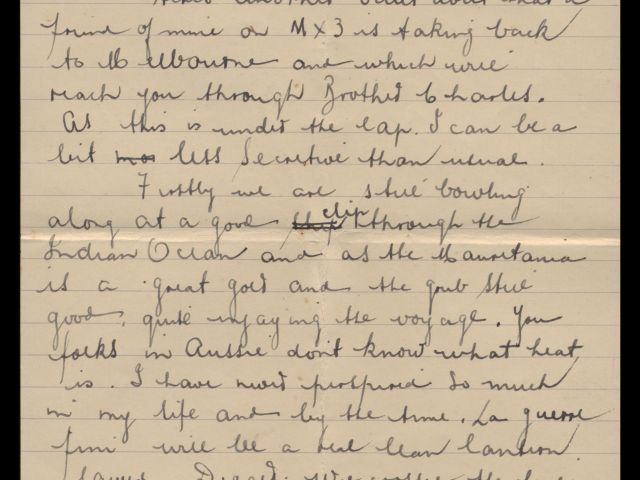 friend of mine on MX3 is taking back
to Melbourne and which will
reach you through Brother Charles.
As this is under the lap. I can be a
bit mor less secretive than usual.
Firstly we are still bowling
along at a good ship clip through the
Indian Ocean and as the Mauretania
is a great goer and the grub still
good, quite injaying the voyage. You
folks in Aussie dont know what heat
is. I have never perspired so much
in my life and by the time. La guerre
fini will be a real lean lantern